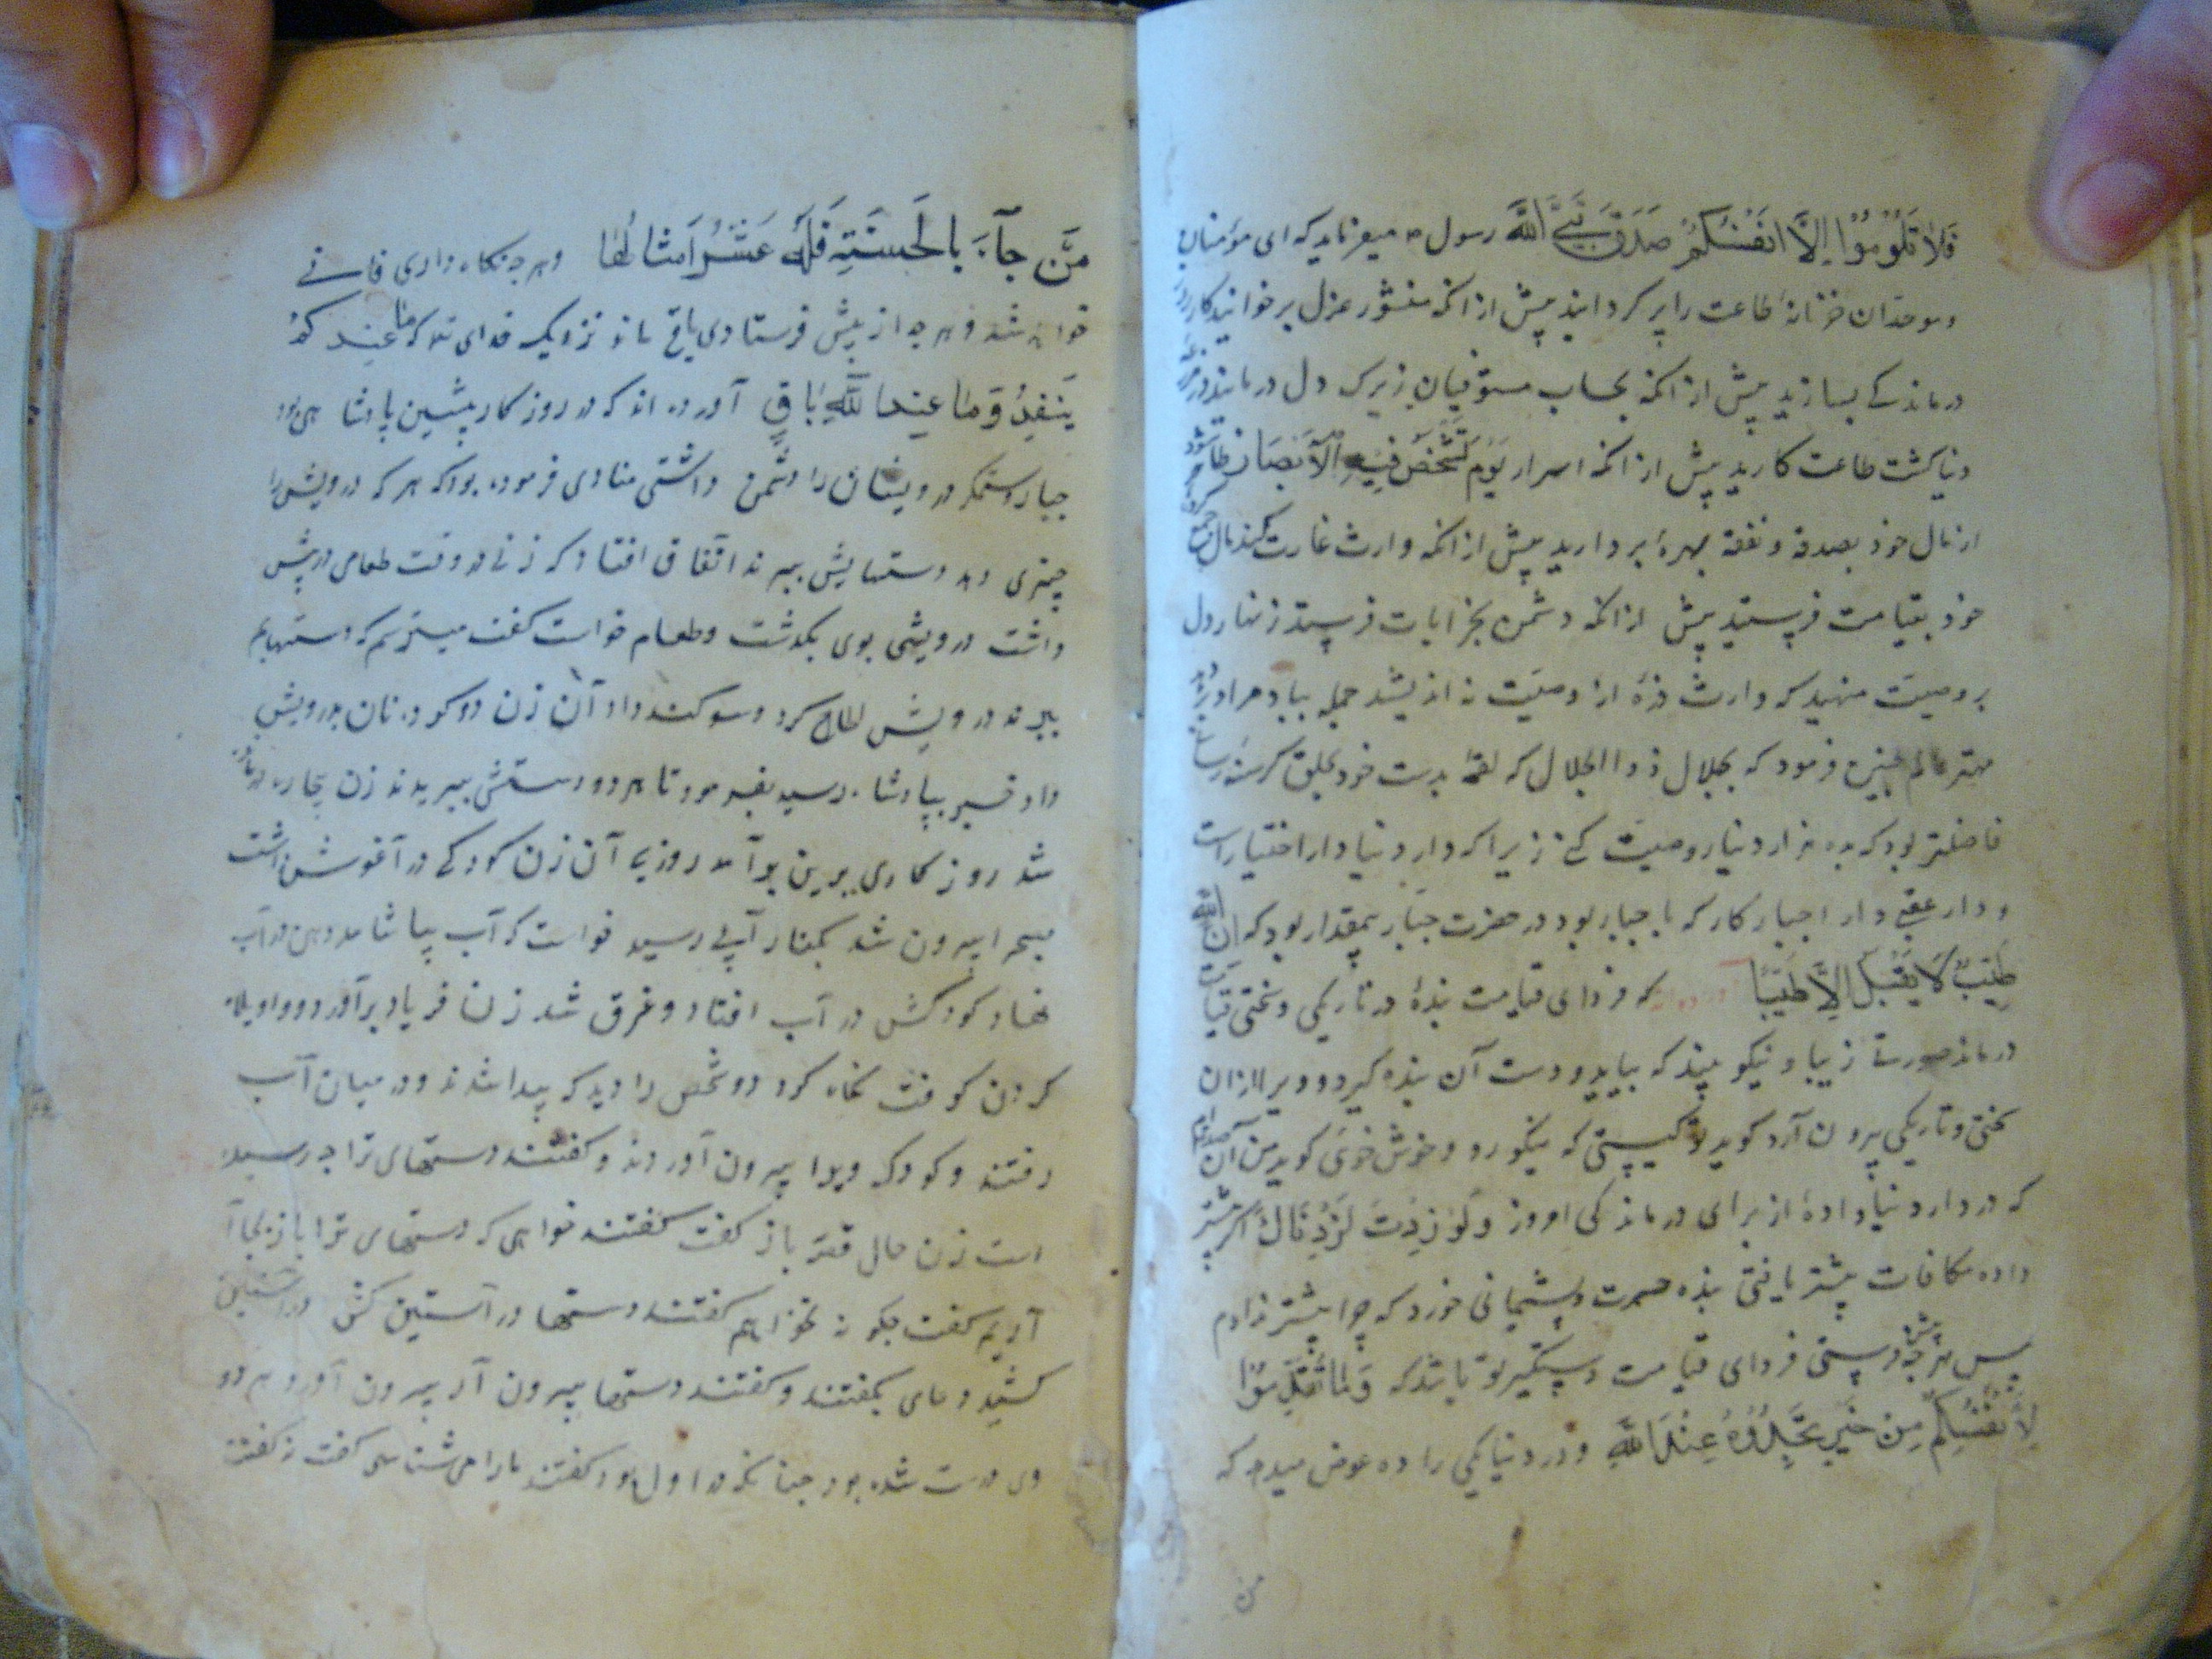 فَلَا تَلُومُوا إِلَّا أَنْفُسَكُمْ صَدَقَ نَبِيُّ اللَّه رسول م میفرماید که ای مومنان
و موحدان خزانهٔ طاعت را پر کردانید پیش از انکه منشور عزل بر خوانید کار روز
درماندکے بسازید پیش از انکه بحساب مستوفیان زیرک دل درمانید در
دنیا کشت طاعت کارید پیش از انکه اسرار یَوْمَ تَشْخَصُ فِيهِ الْأَبْصَار ظاهر شود
از مال خود بصدقه و نفقه بهرهٔ بردارید پیش از انکه وارث غارت کند مال جمع کرده
خود بقیامت فرستید پیش از انکه دشمن بخرابات فرستد زنهار دل
بر وصیت منهید که وارث ذرهٔ از وصیت نه اندیشد جمله بباد دهد
مهتر عالم چنین فرمود که بجلال ذوالجلال که لقمهٔ بدست خود بحلق کرسنه رسانی
فاضلتر بود که بده هزار دنیار وصیت کنے زیرا که دار دنیا دار اختیار است
و دار عقبے دار اجبار کار که با جبار بود در حضرت جبار بیمقدار بود که اِنَّ اللّه
طَيِّبٌ لَا يَقْبَلُ إِلَّا طَيِّبًا آورده اند که فردای قیامت بندهٔ در تاریکی و سختی قیامت
درماند صورتے زیبا و نیکو بیند که بیاید و دست آن بنده کیرد و ویرا از ان
سختی و تاریکی بیرون آرد کوید تو کیستی که نیکو رو و خوش خوی کوید من آن صدقه ام
که در دار دنیا دادهٔ از برای درماندکی امروز وَلَوْ زِدْتَ لَزِدْنَاكَ اکر بیشتر
داده مکافات بیشتر یافتی بنده حسرت و پشیمانی خورد که چرا بیشتر ندادم
پس هر چه پیش فرستی فردای قیامت دستکیر تو باشد که وَمَا تُقَدِّمُوا
لِأَنْفُسِكُمْ مِنْ خَيْرٍ تَجِدُوهُ عِنْدَ اللَّهِ و در دنیا یکی را ده عوض میدهد که
من
مَنْ جَآءَ بِالْحَسَنَةِ فَلَهُ عَشْرُ أَمْثَالِهَا و هر چه نکاه داری فانے
خواهد شد و هر چه از پیش فرستادی باقی ماند نزدیک خدای تع که مَا عِنْدَكُمْ
يَنْفَدُ وَمَا عِنْدَ اللَّهِ بَاقٍ آورده اند که در روزکار پیشین پادشاهی بود
جبار و ستمکر درویشان را دشمن داشتی منادی فرموده بود که هر که درویش را
چیزی دهد دستهایش ببرند اتفاق افتاد که زنے در وقت طعامی در پیش
داشت درویشی بوی بکذشت و طعام خواست کفت میترسم که دستهایم
ببرند درویش الحاح کرد و سوکند داد آن زن دو کرده نان بدرویش
داد خبر بپادشاه رسید بفرمود تا هر دو دستش ببریدند زن بیچاره
شد روزکاری برین برآمد روزی آن زن کودکے در آغوش داشت
بصحرا بیرون شد بکنار آبے رسید خواست که آب بیاشامد دهن در آب
نهاد کودکش در آب افتاد و غرق شد زن فریاد برآورد و واویلاه
کردن کرفت نکاه کرد دو شخص را دید که پیدا شدند و در میان آب
رفتند و کودک ویرا بیرون آوردند و کفتند دستهای ترا چه رسیده
است زن حال قصه باز کفت کفتند خواهی که دستهای ترا باز بجا
آریم کفت چکونه نخواهم کفتند دستها در آستین کش در آستین
کشید دعای بکفتند و کفتند دستها بیرون آر بیرون آورد هر دو
دست درست شده بود چنانکه در اول بود کفتند ما را می شناسی کفت نه کفتند